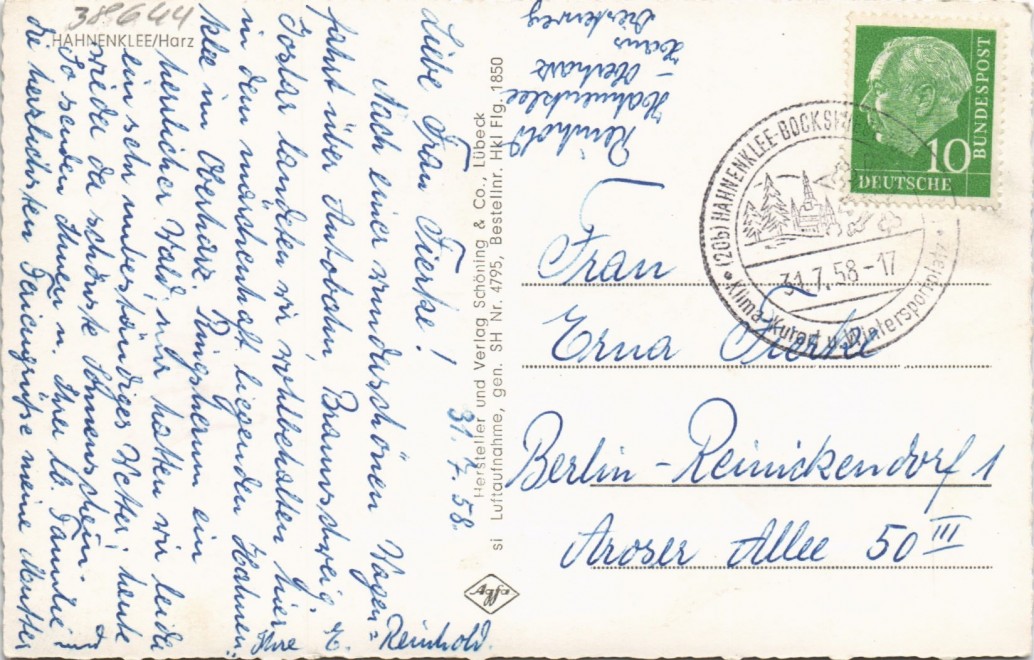 38644
HAHNENKLEE/Harz
31.7.58.
Liebe Frau Fierke!
Nach einer wunderschönen Wagen=
fahrt über Autobahn, Braunschweig,
Goslar landeten wir wohlbehalten hier
in dem märchenhaft liegenden Hahnen,
klee im Oberharz. Ringsherum ein
herrlicher Wald, nur hatten wir leider
ein sehr unbeständiges Wetter; heute
wieder da schönste Sonnenschein.
So senden Ihnen u. Ihrer lb. Familie
die herzlichsten Feriengrüße meine Mutter
und
Ihre E. Reinhold.
Hersteller und Verlag Schöning & Co., Lübeck
si Luftaufnahme, gen. SH Nr. 4795, Bestellnr. Hkl Flg. 1850
Agfa
Reinhold
Hahnenklee
– Oberharz
Haus
Birkenweg
10
DEUTSCHE
BUNDESPOST
(20b) HAHNENKLEE-BOCKSWIESE
31.7.58-17
Klima-Kurort u. Wintersportplatz
Frau
Erna Fierke
Berlin-Reinickendorf 1
Aroser Allee 50 III